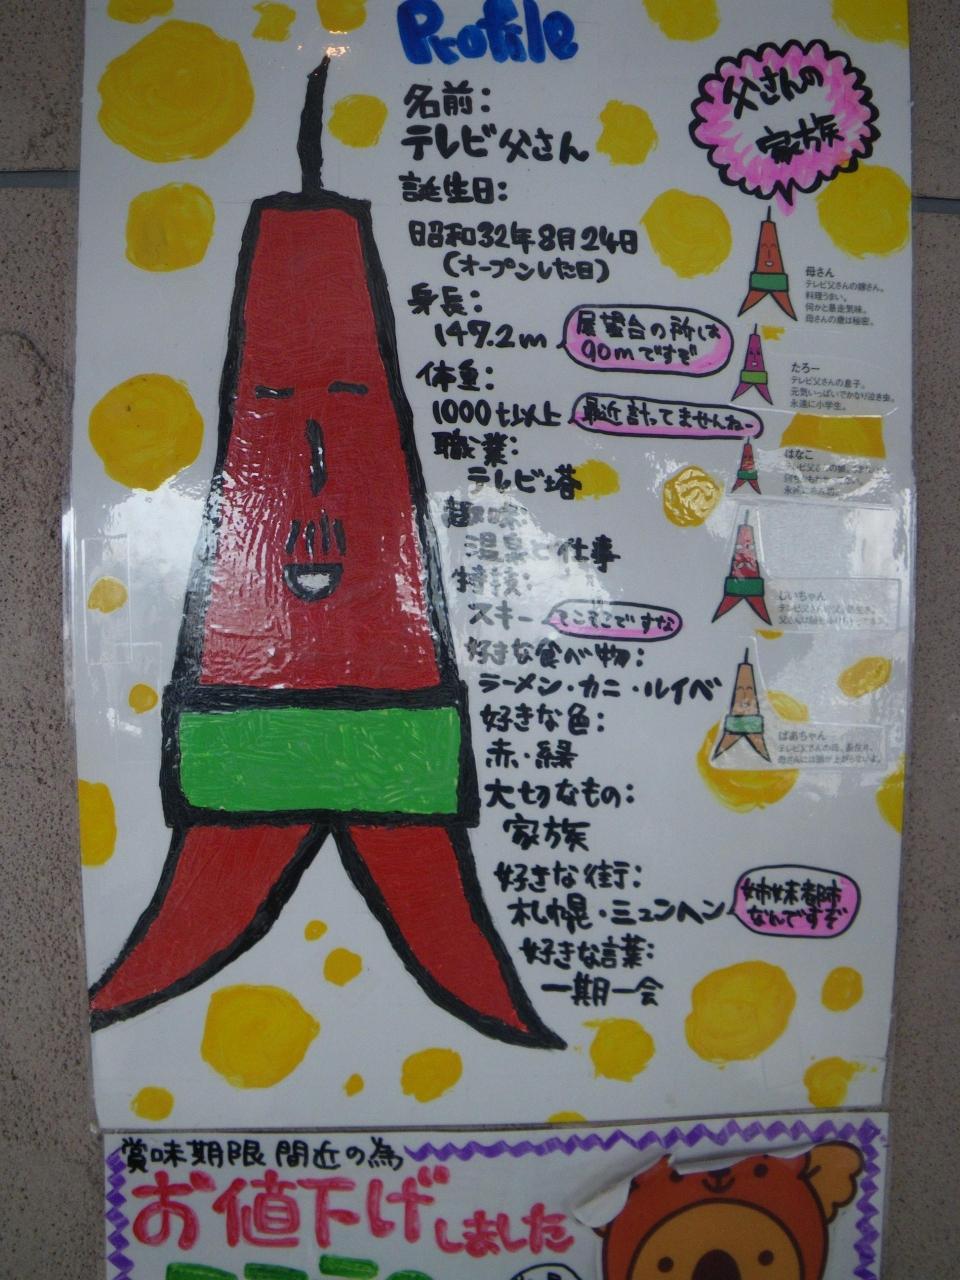 Profile
名前:
テレビ父さん
誕生日:
昭和32年8月24日
(オープンした日)
身長:
147.2m
展望台の所は
90mですぞ
体重:
1000t以上
最近計ってませんねー
職業:
テレビ塔
趣味:
温泉と仕事
特技:
スキー
そこそこですな
好きな食べ物:
ラーメン・カニ・ルイベ
好きな色:
赤・緑
大切なもの:
家族
好きな街:
札幌・ミュンヘン
姉妹都市
なんですぞ
好きな言葉:
一期一会
父さんの
家族
母さん
テレビ父さんの嫁さん。
料理うまい。
何かと暴走気味。
母さんの歳は秘密。
たろー
テレビ父さんの息子。
元気いっぱいでかなり泣き虫。
永遠に小学生。
はなこ
じいちゃん
ばあちゃん
母さんには頭が上がらないよ。
賞味期限間近の為
お値下げしました